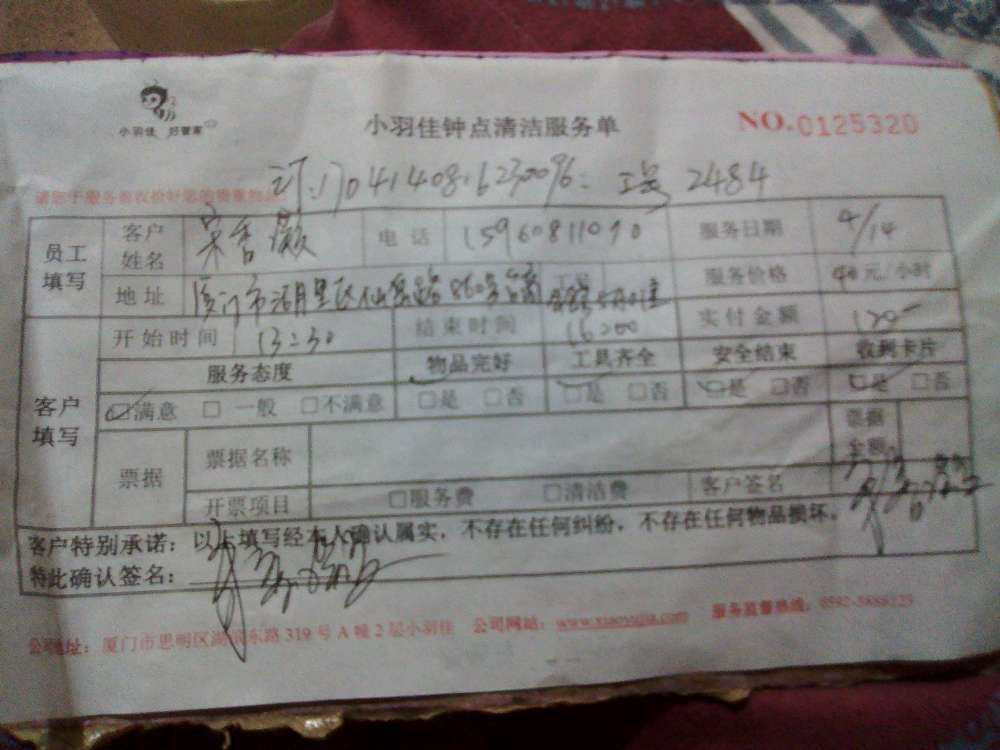 小羽佳 好管家
小羽佳钟点清洁服务单
NO.0125320
订:1704140816230096. 2484
请您于服务前收拾好您的贵重物品
员工填写 客户姓名 宋香薇 电话 15960811090 服务日期 4/14
地址 厦门市湖里区仙岳路860号 服务价格 40元/小时
客户填写 开始时间 13:30 结束时间 16:00 实付金额
服务态度 物品完好 工具齐全 安全结束 收到卡片
☑满意 □一般 □不满意 □是 □否 □是 □否 ☑是 □否 ☑是 □否
票据 票据名称 票据金额
开票项目 □服务费 □清洁费 客户签名
客户特别承诺:以上填写经本人确认属实,不存在任何纠纷,不存在任何物品损坏,
特此确认签名:
公司地址:厦门市思明区湖滨东路319号A幢2层小羽佳 公司网站:www.xiaoyujia.com 服务监督热线: